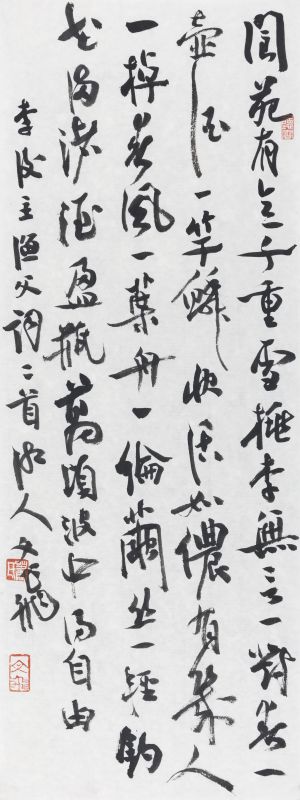 閬苑有意千重雪桃李無言一對春一
壺酒一竿鱗快活如儂有幾人
一棹春風一葉舟一綸繭丝一輕鈎
花滿渚酒盈瓶萬頃波中得自由
李後主漁父詞二首湘人